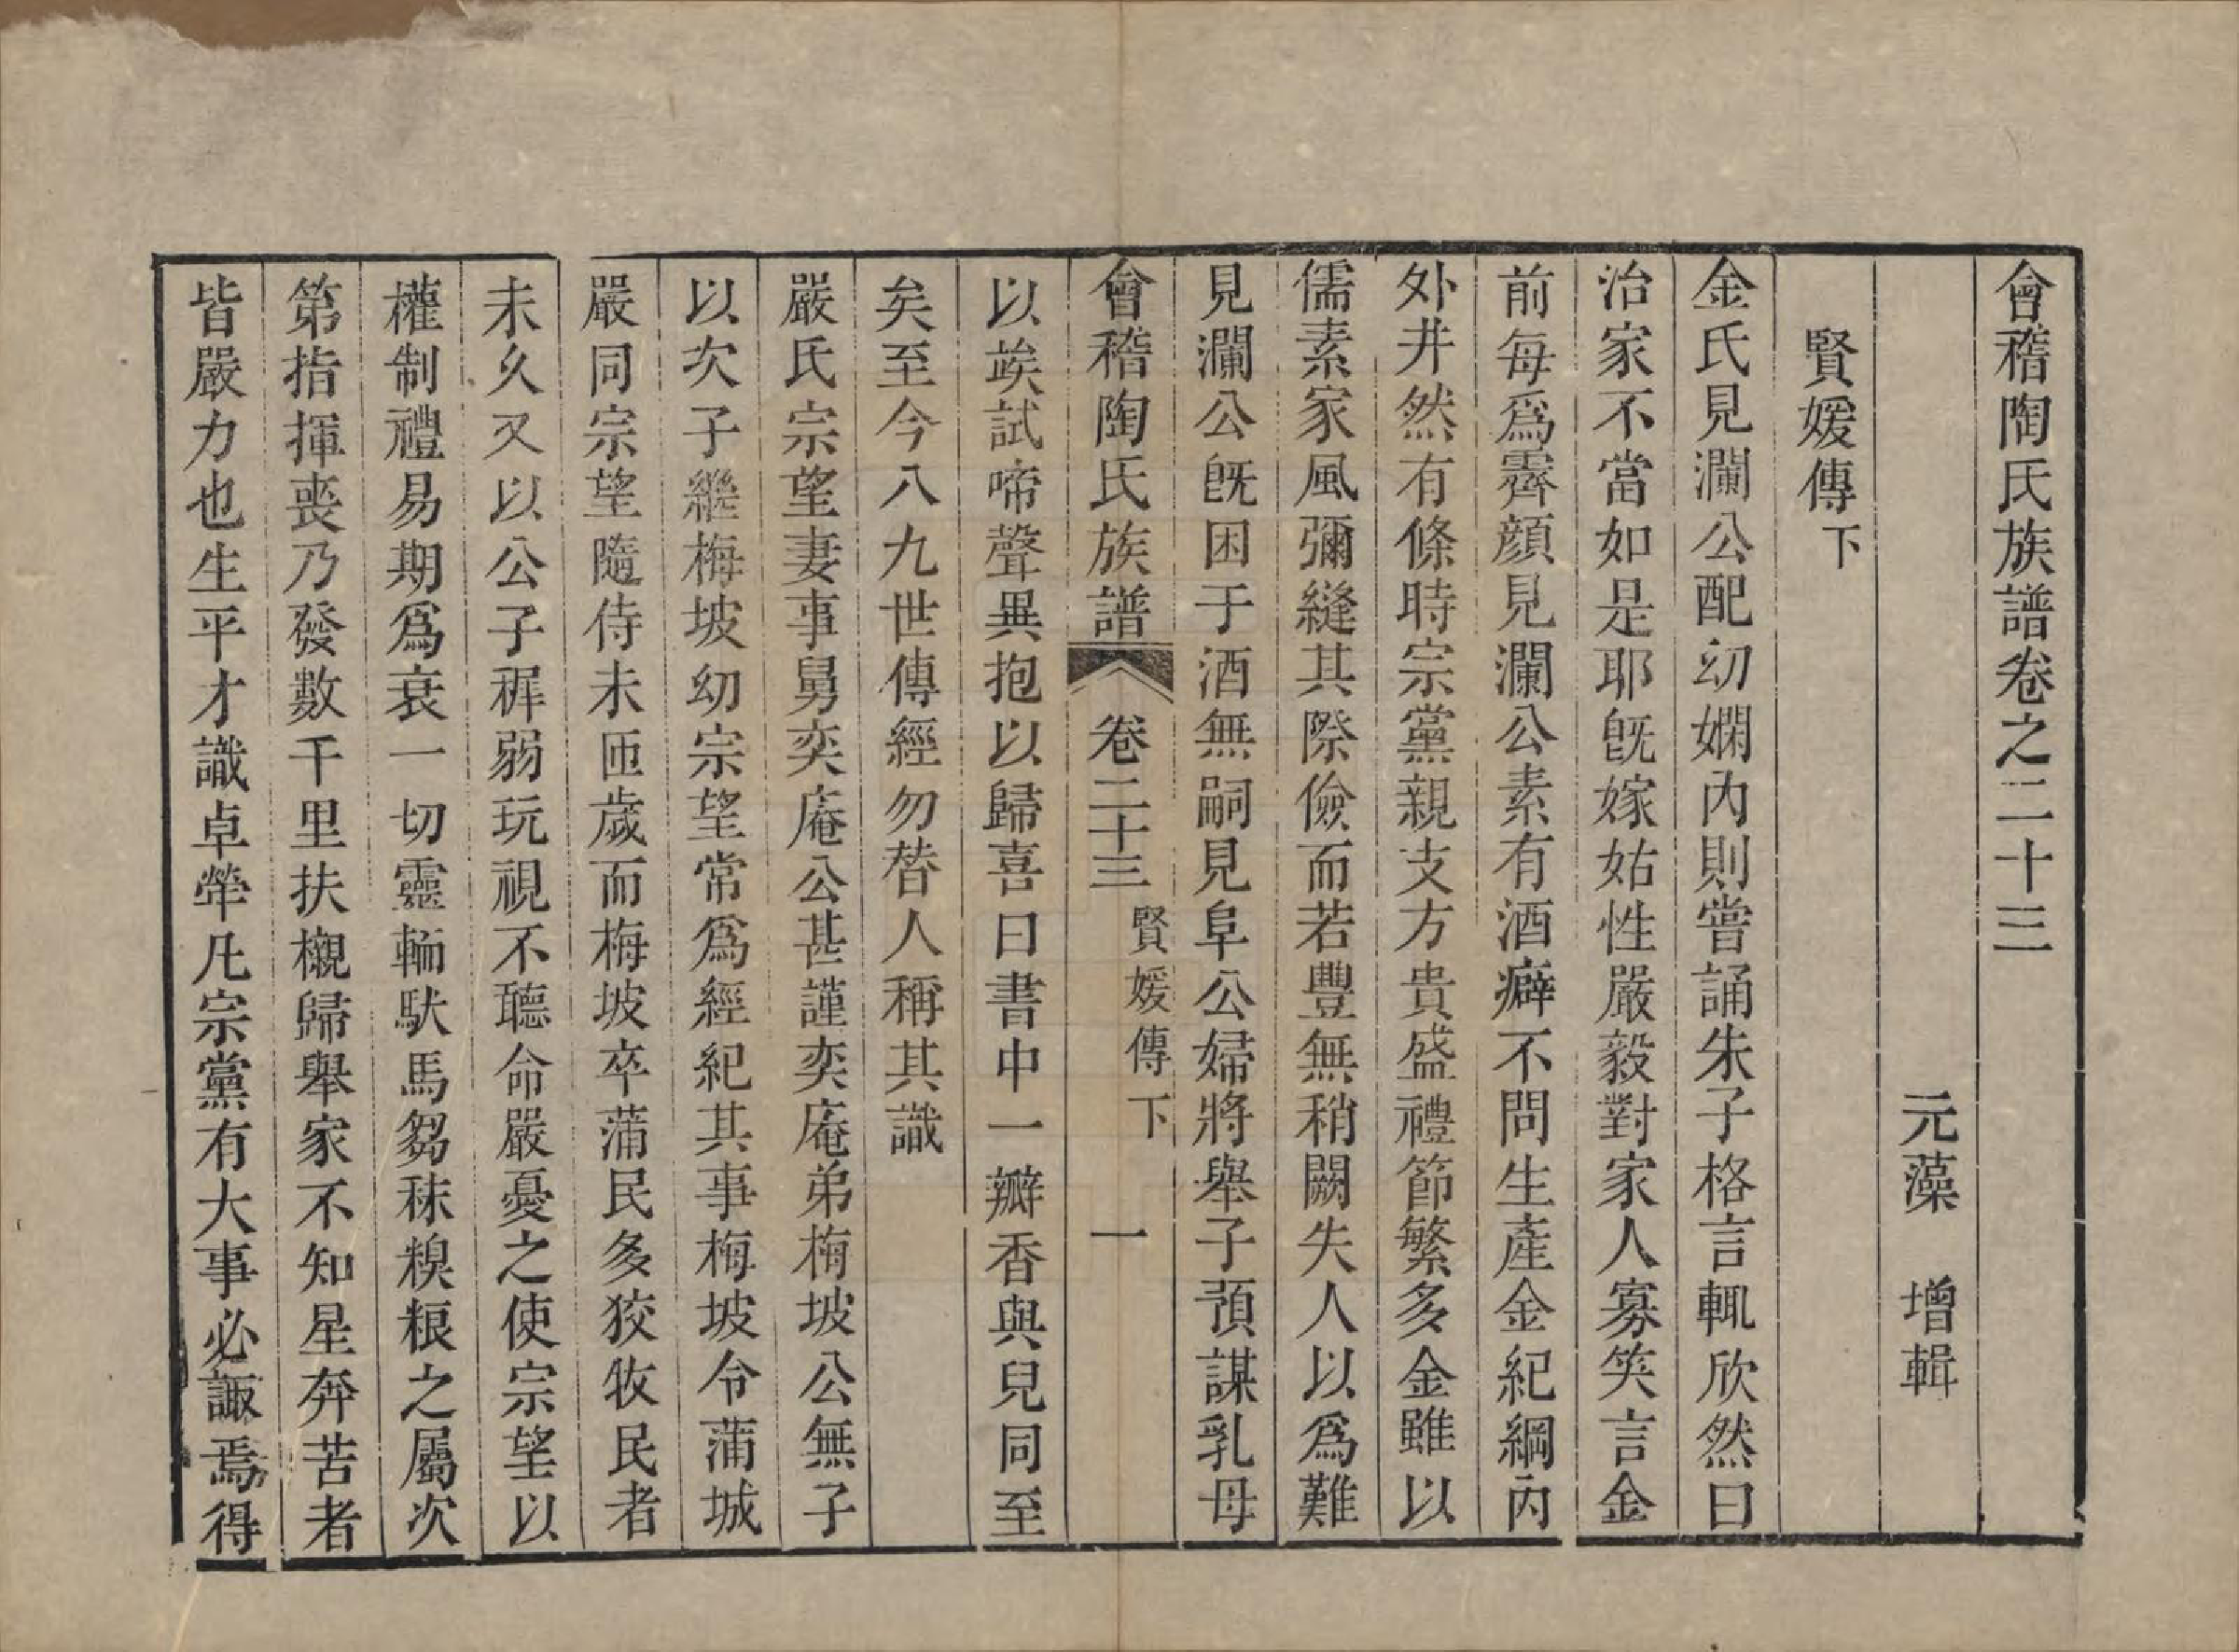 會稽陶氏族譜卷之二十三
元藻　增輯
賢媛傳下
金氏見瀾公配幼嫻內則嘗誦朱子格言輒欣然曰
治家不當如是耶旣嫁姑性嚴毅對家人寡笑言金
前每爲霽顔見瀾公素有酒癖不問生產金紀綱內
外井然有條時宗黨親支方貴盛禮節繁多金雖以
儒素家風彌縫其際儉而若豐無稍闕失人以爲難
見瀾公旣困于酒無嗣見阜公婦將舉子預謀乳母
會稽陶氏族譜　卷二十三　賢媛傳下　一
以俟試啼聲異抱以歸喜曰書中一瓣香與兒同至
矣至今八九世傳經勿替人稱其識
嚴氏宗望妻事舅奕庵公甚謹奕庵弟梅坡公無子
以次子繼梅坡幼宗望常爲經紀其事梅坡令蒲城
嚴同宗望隨侍未匝歲而梅坡卒蒲民多狡牧民者
未久又以公子穉弱玩視不聽命嚴憂之使宗望以
權制禮易期爲衰一切靈輀馱馬芻秣糗粻之屬次
第指揮喪乃發數千里扶櫬歸舉家不知星奔苦者
皆嚴力也生平才識卓犖凡宗黨有大事必諏焉得